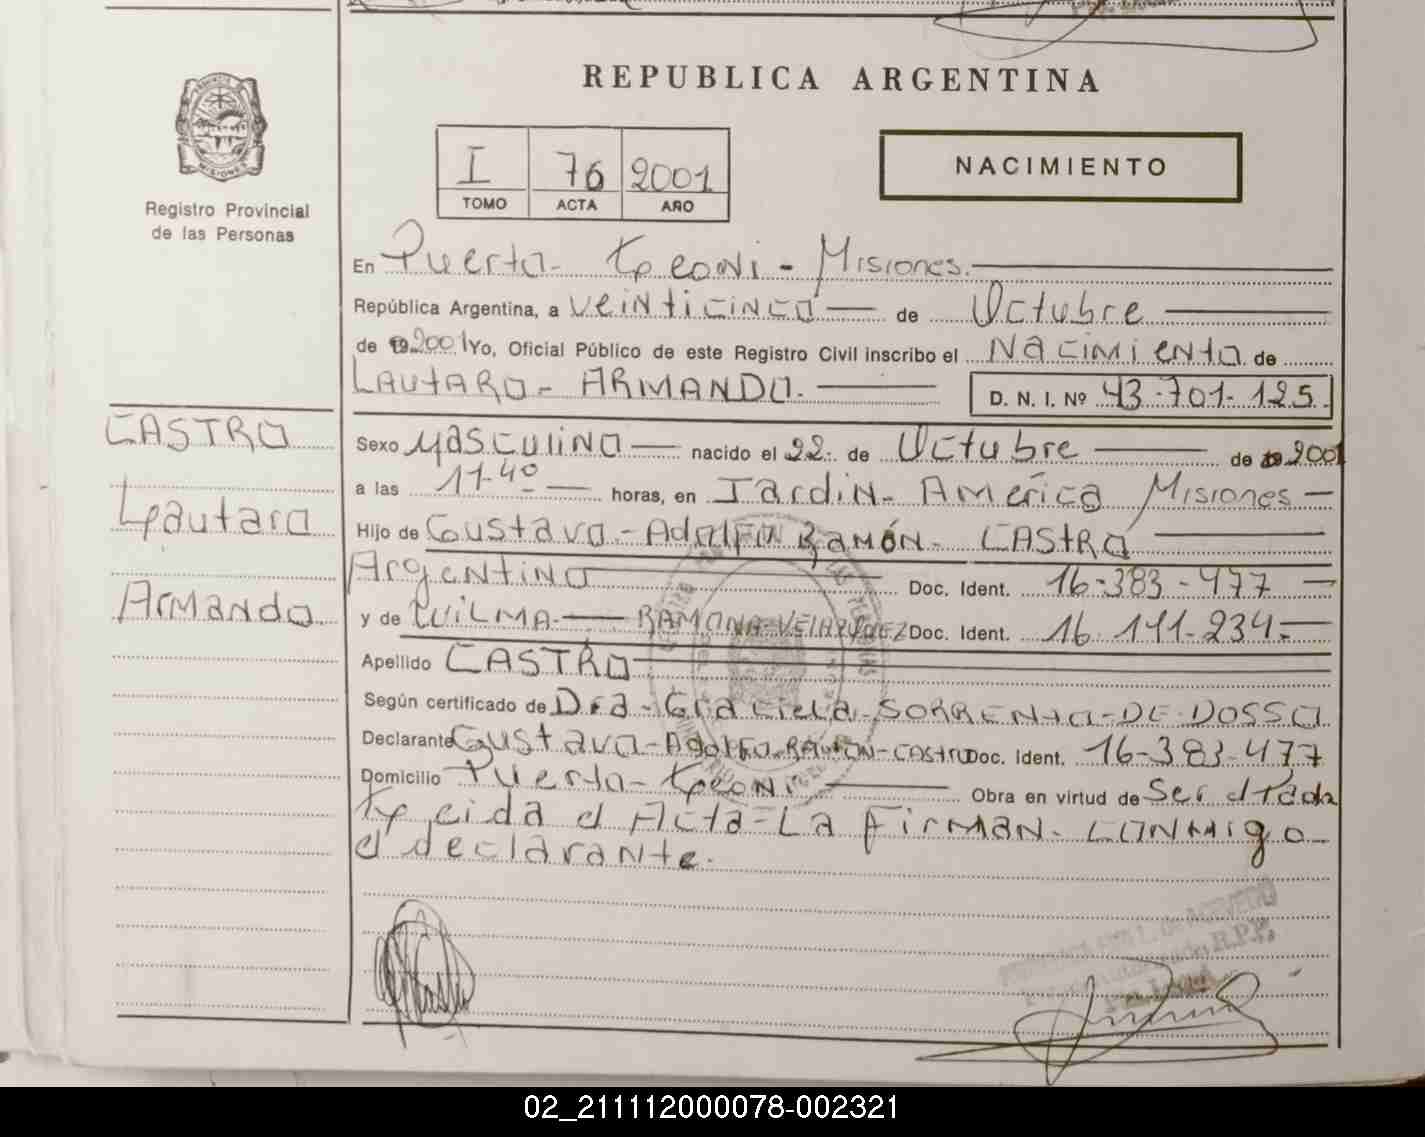 REPUBLICA ARGENTINA
PROVINCIA
MISIONES
Registro Provincial
de las Personas
NACIMIENTO
I 76 2001
TOMO ACTA AÑO
En Puerto- Leoni - Misiones.
República Argentina, a veinticinco de Octubre
de 2001 Yo, Oficial Público de este Registro Civil inscribo el Nacimiento de
LAUTARO- ARMANDO.
D. N. I. Nº 43-701-125.
CASTRO
Lautaro
Armando
Sexo Masculino nacido el 22 de Octubre de 2001
a las 11-40 horas, en Jardin- America Misiones
Hijo de Gustavo-Adolfo Ramón- CASTRO
Argentino Doc. Ident. 16-383-477
y de WILMA- RAMONA-VELAZQUEZ Doc. Ident. 16 141-234-
Apellido CASTRO
Según certificado de Dra-Graciela-SORRENTO-DE-DOSSO
Declarante Gustavo-Adolfo-RAMON-CASTRO Doc. Ident. 16-383-477
Domicilio Puerto-Leoni Obra en virtud de Ser d Pada
Leida el Acta-La firman- conmigo
el declarante.
L. De ACEVEDO
R.P.P.
02_211112000078-002321